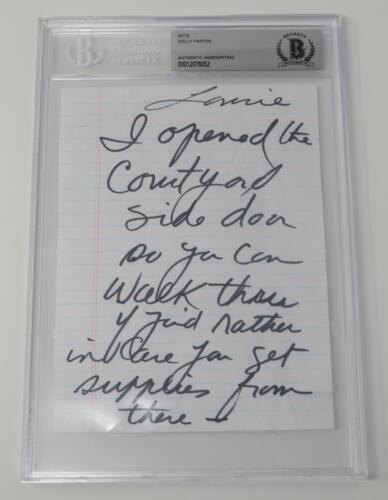 BECKETT
GRADING
SERVICES
NOTE
DOLLY PARTON
AUTHENTIC HANDWRITING
00012078052
BECKETT
B
Lonnie
I opened the
Courtyard
side door
so you can
walk thru
if you'd rather
in case you get
supplies from
there –